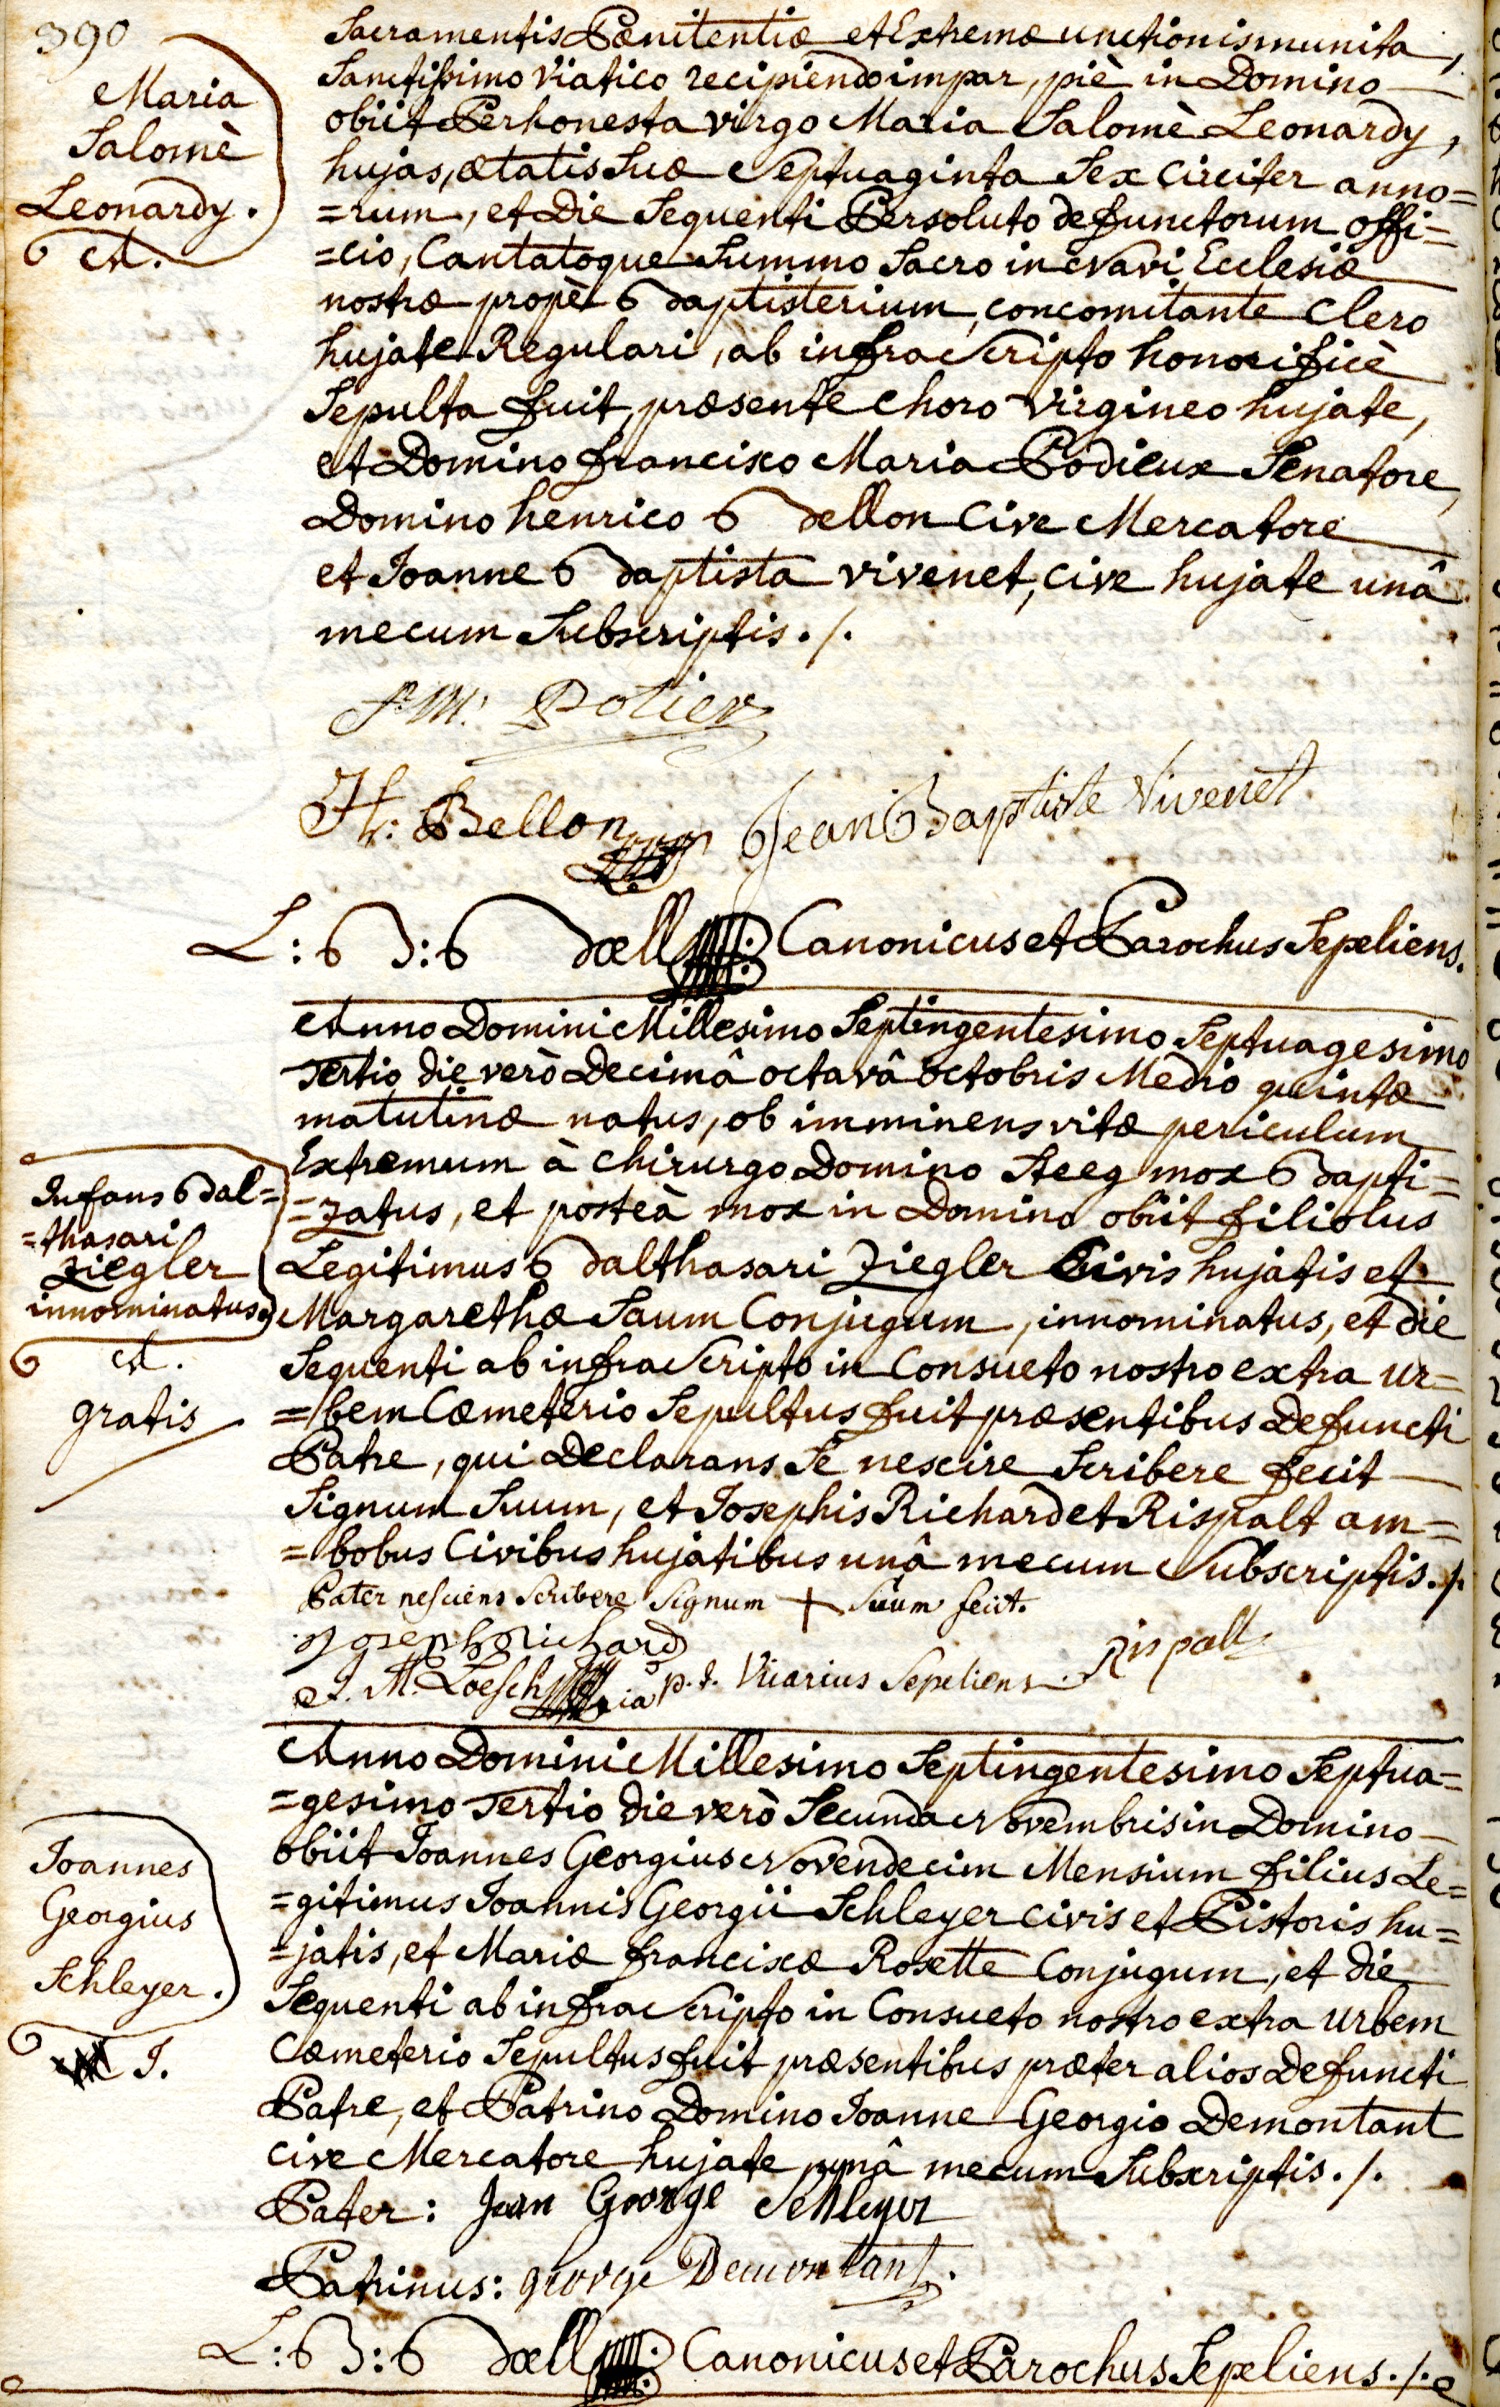 390
Maria
Salomè
Leonardy.
A.
Sacramentis Pænitentiæ et Extremæ unctionis munita,
Sanctissimo Viatico recipiendo impar, piè in Domino
obiit Perhonesta virgo Maria Salomè Leonardy,
hujas, ætatis suæ Septuaginta Sex Circiter anno=
=rum, et die Sequenti Persoluto defunctorum offi=
=cio, Cantatoque Summo Sacro in Navi Ecclesiæ
nostræ propè Baptisterium, concomitante Clero
hujate Regulari, ab infra Scripto honorificè
Sepulta fuit, præsente Choro Virgineo hujate,
et Domino francisco Maria Podieux Senatore,
Domino henrico Bellon Cive Mercatore
et Joanne Baptista vivenet, cive hujate unâ
mecum Subscriptis ./.
F. M: Potier
H: Bellon
Jean Baptiste Vivenet
L: B: Bœll Canonicus et Parochus Sepeliens.
Infans Bal=
=thasari
Ziegler
innominatus.
A.
gratis
Anno Domini Millesimo Septingentesimo Septuagesimo
Tertio die verò Decimâ octavâ octobris Medio quintæ
matutinæ natus, ob imminens vitæ periculum
Extremum à Chirurgo Domino Steeg mox Bapti=
=zatus, et posteà mox in Domino obiit filiolus
Legitimus Balthasari Ziegler Civis hujatis et
Margarethæ Saum Conjugum, innominatus, et die
Sequenti ab infra Scripto in Consueto nostro extra ur=
=bem Cœmeterio Sepultus fuit præsentibus Defuncti
Patre, qui Declarans Se nescire Scribere fecit
Signum Suum, et Josephis Richard et Rispalt am=
=bobus Civibus hujatibus unâ mecum Subscriptis ./.
Pater nesciens Scribere Signum + Suum fecit.
Joseph Richard
Rispalt
J. M. Loesch p. t. Vicarius Sepeliens
Joannes
Georgius
Schleyer.
J.
Anno Domini Millesimo Septingentesimo Septua=
=gesimo Tertio die verò Secunda Novembris in Domino
obiit Joannes Georgius Novendecim Mensium filius Le=
=gitimus Joannis Georgii Schleyer civis et Pistoris hu=
=jatis, et Mariæ franciscæ Rosette Conjugum, et die
Sequenti ab infra Scripto in Consueto nostro extra urbem
Cœmeterio Sepultus fuit præsentibus præter alios Defuncti
Patre, et Patrino Domino Joanne Georgio Demontant
cive Mercatore hujate unâ mecum Subscriptis ./.
Pater: Jean George Schleyer
Patrinus: george Demontant.
L: B: Bœll Canonicus et Parochus Sepeliens ./.